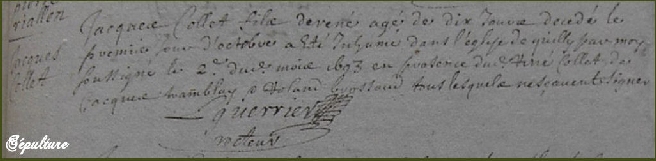 Jacques
Collot
Jacques Collot fils de rené agé de dix jours decedé le
premier jour d'octobre a esté Inhumé dans l'églize de quilly par moy
soussigné le 2e dud. mois 1693 en presence dud. rené Collot, de
Jacques & Roland tous lesquels ne sçavent signer
Guerrier
recteur
Sépulture